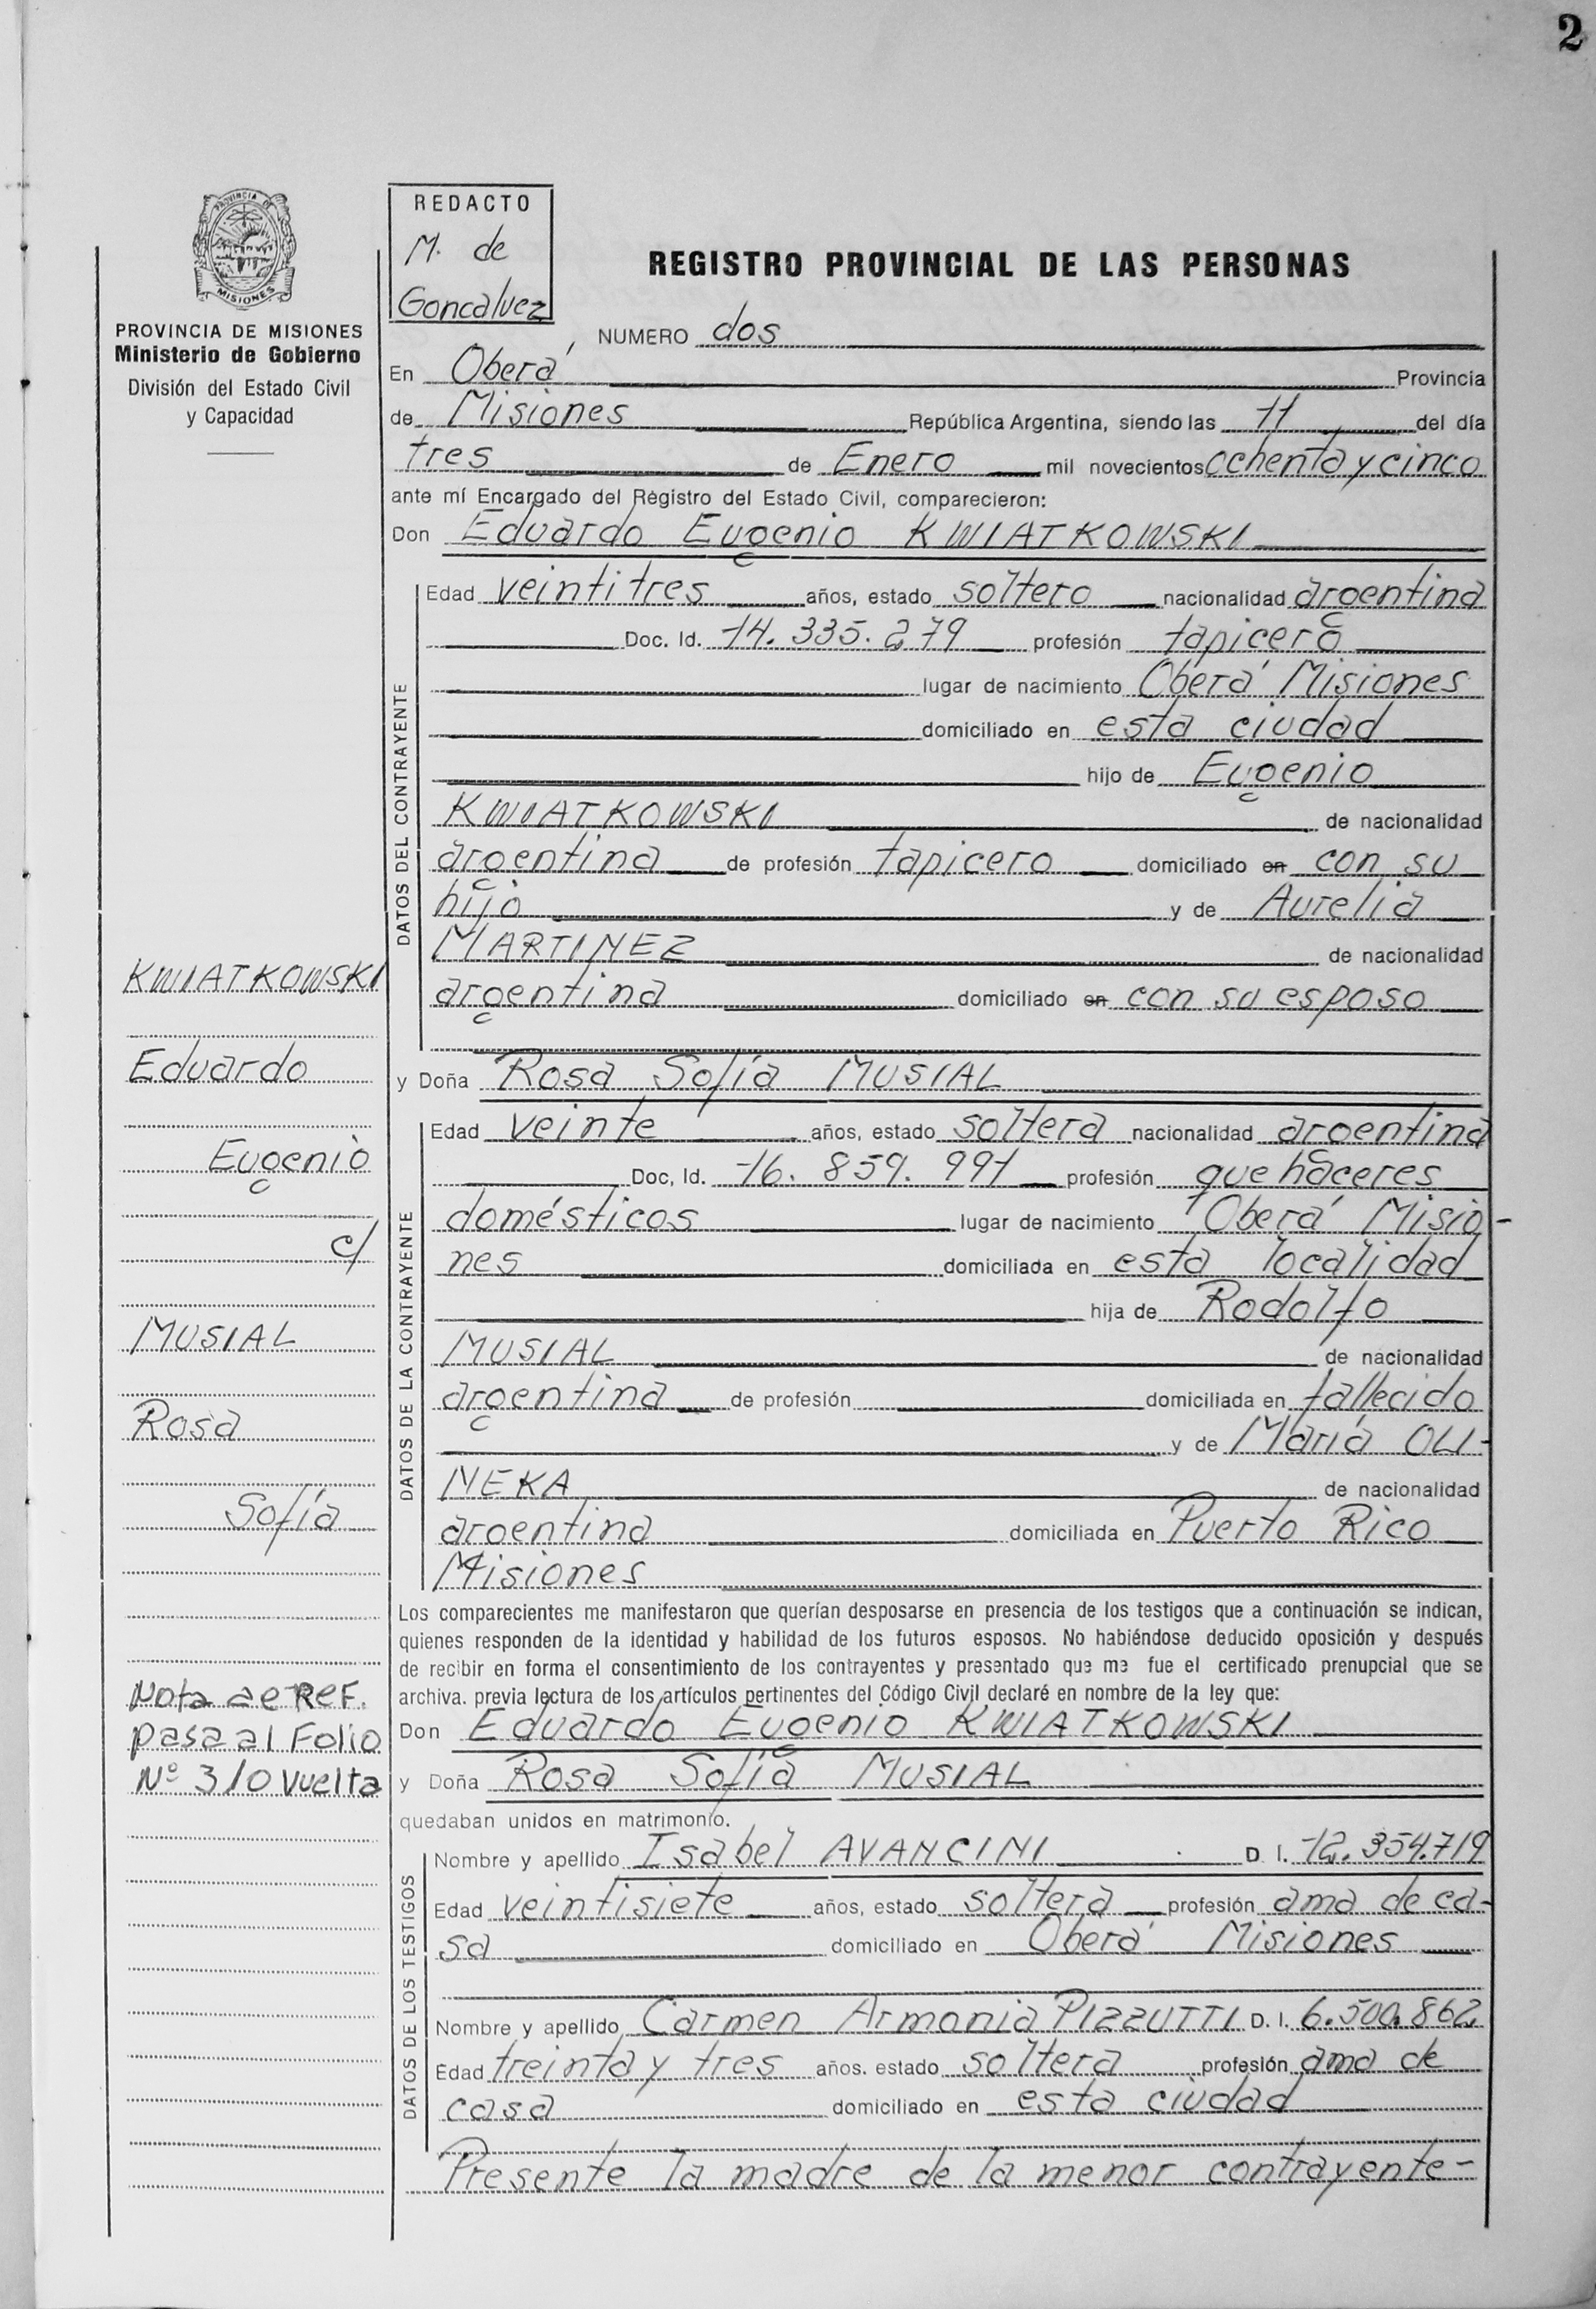 2
PROVINCIA DE
MISIONES
PROVINCIA DE MISIONES
Ministerio de Gobierno
División del Estado Civil
y Capacidad
REDACTO
M. de
Goncalvez
REGISTRO PROVINCIAL DE LAS PERSONAS
NUMERO dos
En Oberá, Provincia
de Misiones República Argentina, siendo las 11 del día
tres de Enero mil novecientos ochenta y cinco
ante mí Encargado del Registro del Estado Civil, comparecieron:
Don Eduardo Eugenio KWIATKOWSKI
DATOS DEL CONTRAYENTE
Edad veintitres años, estado soltero nacionalidad argentina
Doc. Id. 14.335.279 profesión tapicero
lugar de nacimiento Oberá Misiones
domiciliado en esta ciudad
hijo de Eugenio
KWIATKOWSKI de nacionalidad
argentina de profesión tapicero domiciliado en con su
hijo y de Aurelia
MARTINEZ de nacionalidad
argentina domiciliado en con su esposo
y Doña Rosa Sofía MUSIAL
DATOS DE LA CONTRAYENTE
Edad veinte años, estado soltera nacionalidad argentina
Doc. Id. 16.859.991 profesión que haceres
domésticos lugar de nacimiento Oberá Misio-
nes domiciliada en esta localidad
hija de Rodolfo
MUSIAL de nacionalidad
argentina de profesión domiciliada en fallecido
y de María OLI-
NEKA de nacionalidad
argentina domiciliada en Puerto Rico
Misiones
KWIATKOWSKI
Eduardo
Eugenio
c/
MUSIAL
Rosa
Sofía
Nota de Ref.
pasa al Folio
Nº 310 vuelta
Los comparecientes me manifestaron que querían desposarse en presencia de los testigos que a continuación se indican,
quienes responden de la identidad y habilidad de los futuros esposos. No habiéndose deducido oposición y después
de recibir en forma el consentimiento de los contrayentes y presentado que me fue el certificado prenupcial que se
archiva. previa lectura de los artículos pertinentes del Código Civil declaré en nombre de la ley que:
Don Eduardo Eugenio KWIATKOWSKI
y Doña Rosa Sofía MUSIAL
quedaban unidos en matrimonio.
DATOS DE LOS TESTIGOS
Nombre y apellido Isabel AVANCINI D. I. 12.354.719
Edad veintisiete años, estado soltera profesión ama de ca-
sa domiciliado en Oberá Misiones
Nombre y apellido Carmen Armonia PIZZUTTI D. I. 6.500.862
Edad treinta y tres años. estado soltera profesión ama de
casa domiciliado en esta ciudad
Presente la madre de la menor contrayente-